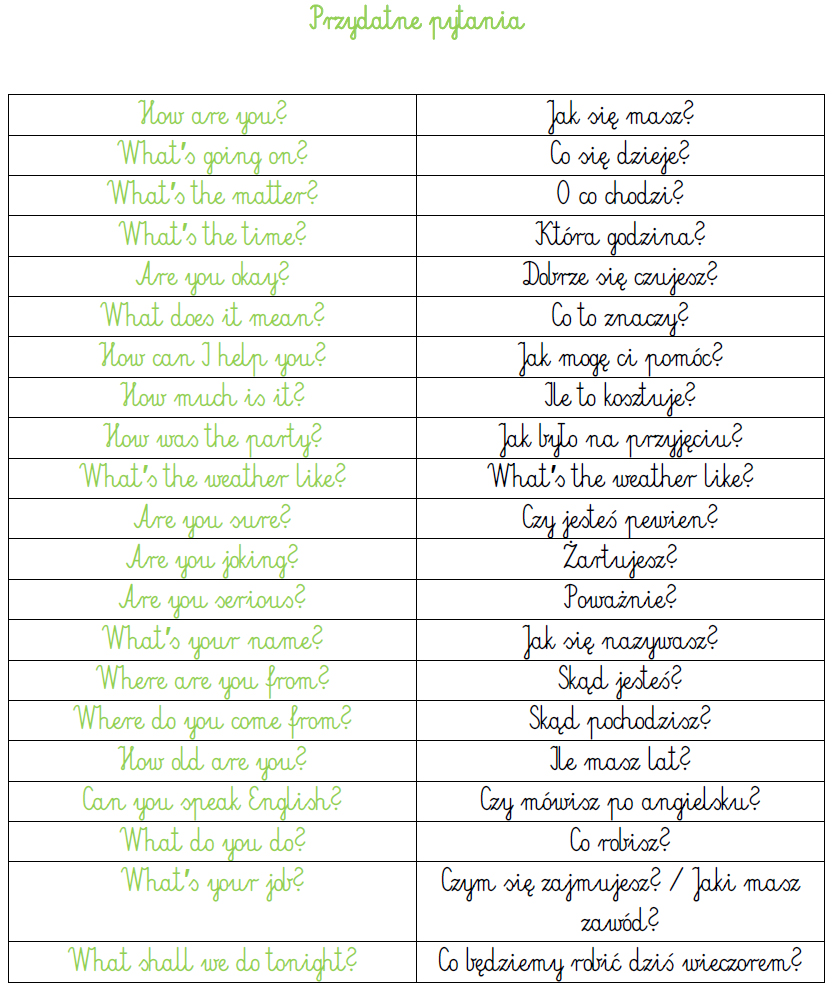 Przydatne pytania
How are you? Jak się masz?
What's going on? Co się dzieje?
What's the matter? O co chodzi?
What's the time? Która godzina?
Are you okay? Dobrze się czujesz?
What does it mean? Co to znaczy?
How can I help you? Jak mogę ci pomóc?
How much is it? Ile to kosztuje?
How was the party? Jak było na przyjęciu?
What's the weather like? What's the weather like?
Are you sure? Czy jesteś pewien?
Are you joking? Żartujesz?
Are you serious? Poważnie?
What's your name? Jak się nazywasz?
Where are you from? Skąd jesteś?
Where do you come from? Skąd pochodzisz?
How old are you? Ile masz lat?
Can you speak English? Czy mówisz po angielsku?
What do you do? Co robisz?
What's your job? Czym się zajmujesz? / Jaki masz
zawód?
What shall we do tonight? Co będziemy robić dziś wieczorem?